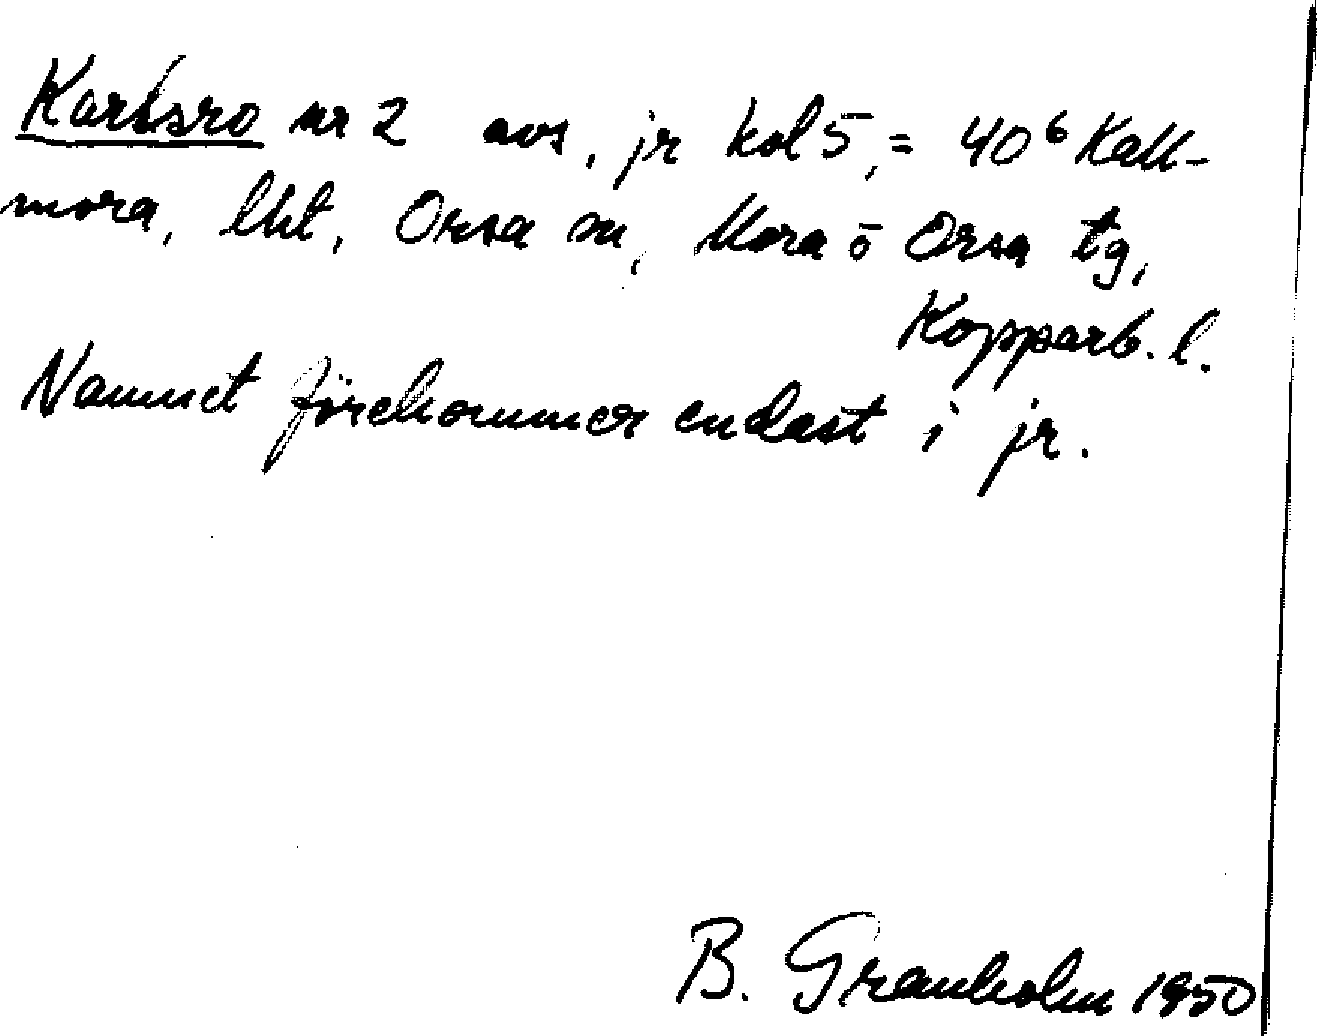 Karlsro nr 2 avs, jr kol 5, = 40⁶ Kall-
mora, lht, Orsa sn, Mora o Orsa tg,
Kopparb. l.
Namnet förekommer endast i jr.
B. Granholm 1950